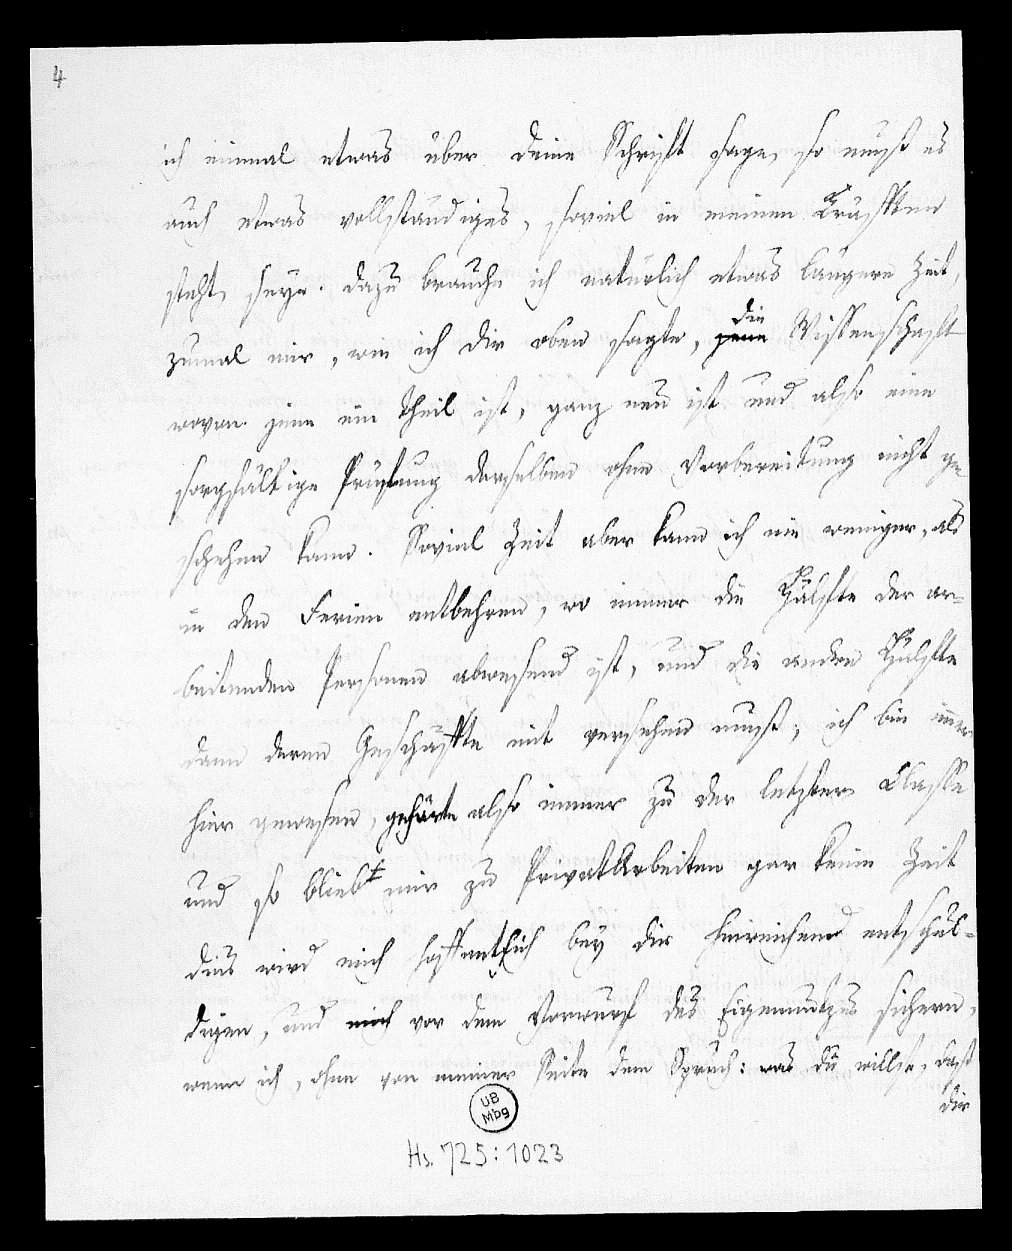 4
ich einmal etwas über deine Schrift sage, so muß es
auch etwas vollständiges, soviel in meinen Kräfften
steht, seyn. Dazu brauche ich natürlich etwas längere Zeit,
zumal mir, wie ich dir oben sagte, die Wissenschaft
wovon jene ein Theil ist, ganz neu ist und also eine
sorgfältige Prüfung derselben ohne Vorbereitung nicht ge
schehen kann. Soviel Zeit aber kann ich nie weniger, als
in den Ferien entbehren, wo immer die Hälfte der ar-
beitenden Personen abwesend ist, und die andre Hälfte
dann deren Geschäffte mit versehen muß; ich bin immer
hier gewesen, gehörte also immer zu der letzten Classe
und so bliebt mir zu PrivatArbeiten gar keine Zeit
dies wird mich hoffentlich bey dir hinreichend entschul-
digen, und mich vor dem Vorwurf des Eigennutzes sichern,
wenn ich, ohne von meiner Seite dem Spruch: was du willst, daß
dir
UB
Mbg
Hs. 725:1023